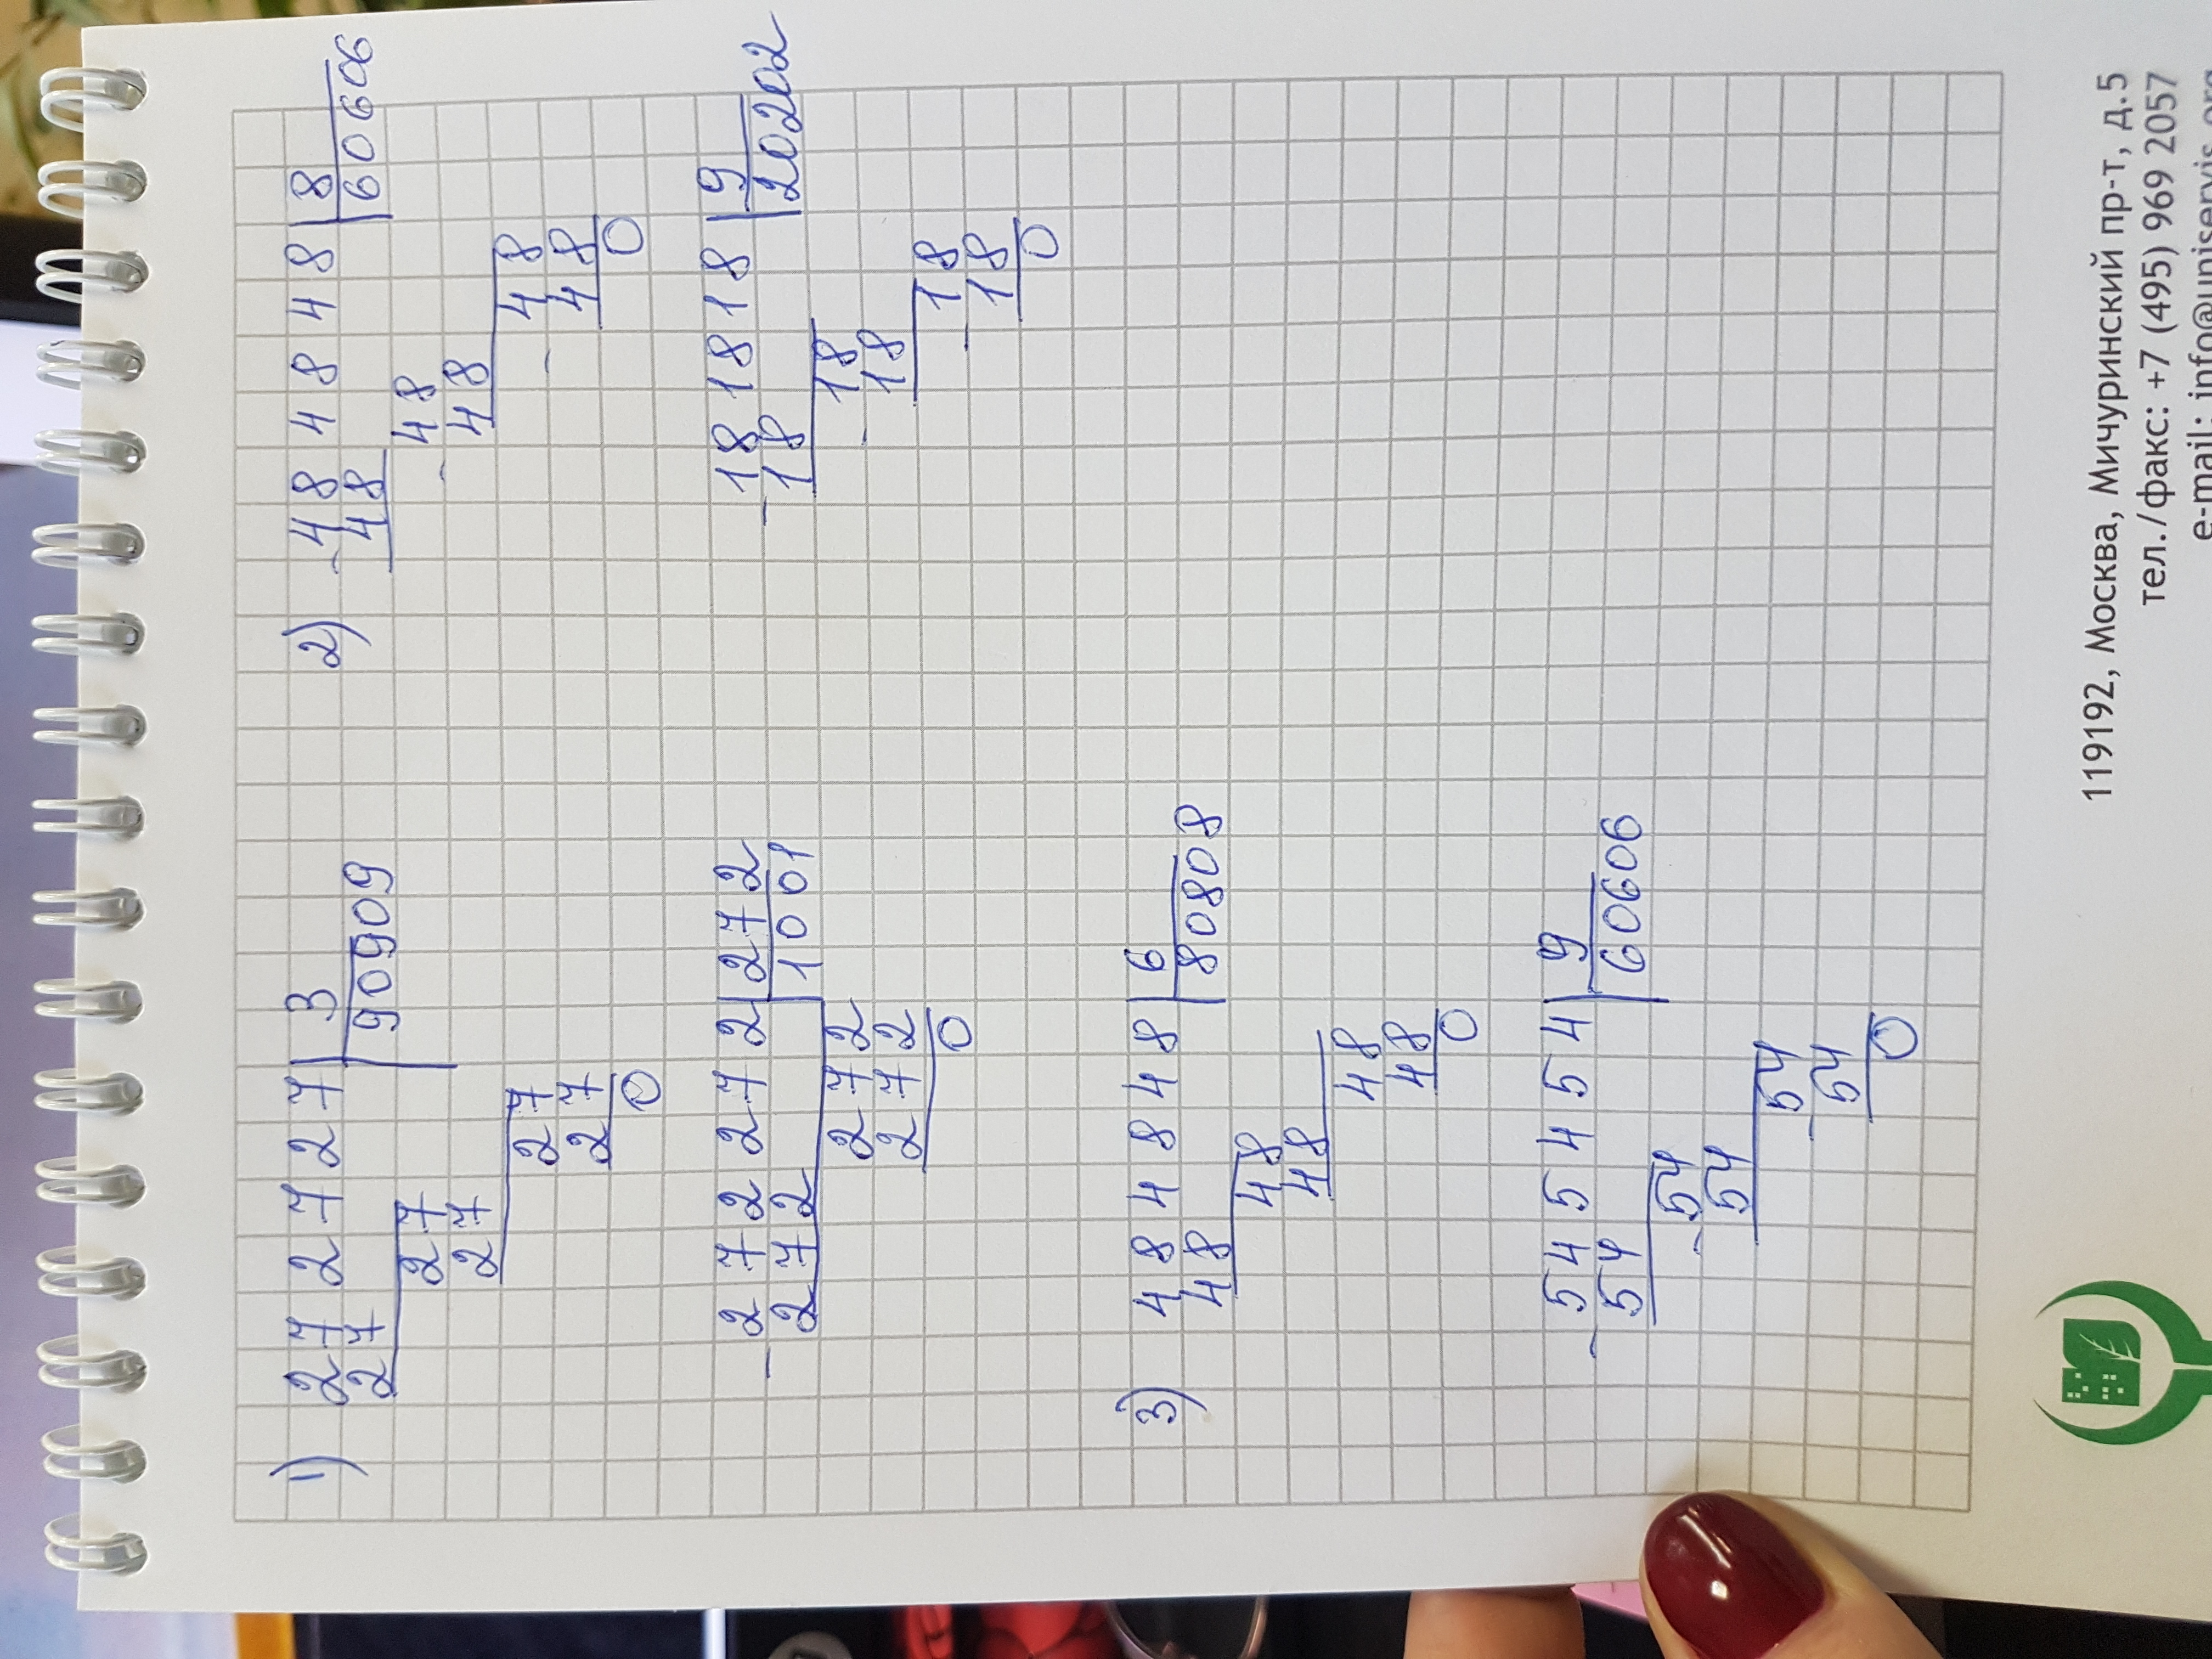 1) 272727 | 3
27 | 90909
27
27
27
27
0
- 272272 | 272
272 | 1001
272
272
0
2) - 484848 | 8
48 | 60606
- 48
48
- 48
48
0
- 181818 | 9
18 | 20202
- 18
18
- 18
18
0
3) 484848 | 6
48 | 80808
48
48
48
48
0
- 545454 | 9
54 | 60606
- 54
54
- 54
54
0
119192, Москва, Мичуринский пр-т, д.5
тел./факс: +7 (495) 969 2057
e-mail: info@uniservis.org